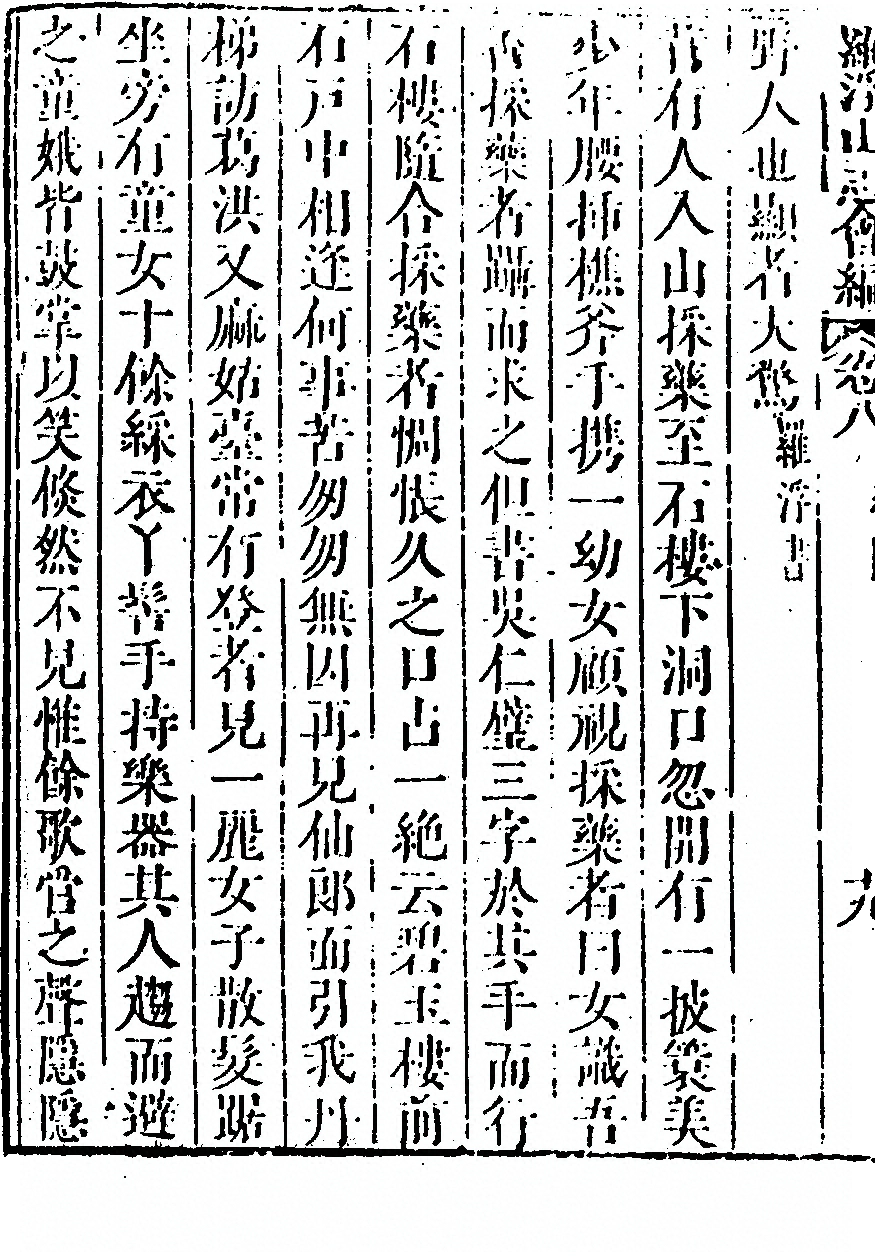 羅浮山志會編 卷八
野人也顯者大驚羅浮書
昔有人入山採藥至石樓下洞口忽開有一披簑美
少年腰插樵斧手携一幼女顧視採藥者曰女識吾
否採藥者躡而求之但書吳仁璧三字於其手而行
石樓隨合採藥者惆悵久之口占一絕云碧玉樓前
石戶中相逢何事苦匆匆無因再見仙郎面引我丹
梯訪葛洪又麻姑臺常有登者見一麗女子散髮踞
坐旁有童女十餘綵衣丫髻手持樂器其人趨而避
之童娥皆鼓掌以笑倐然不見惟餘歌管之聲隱隱